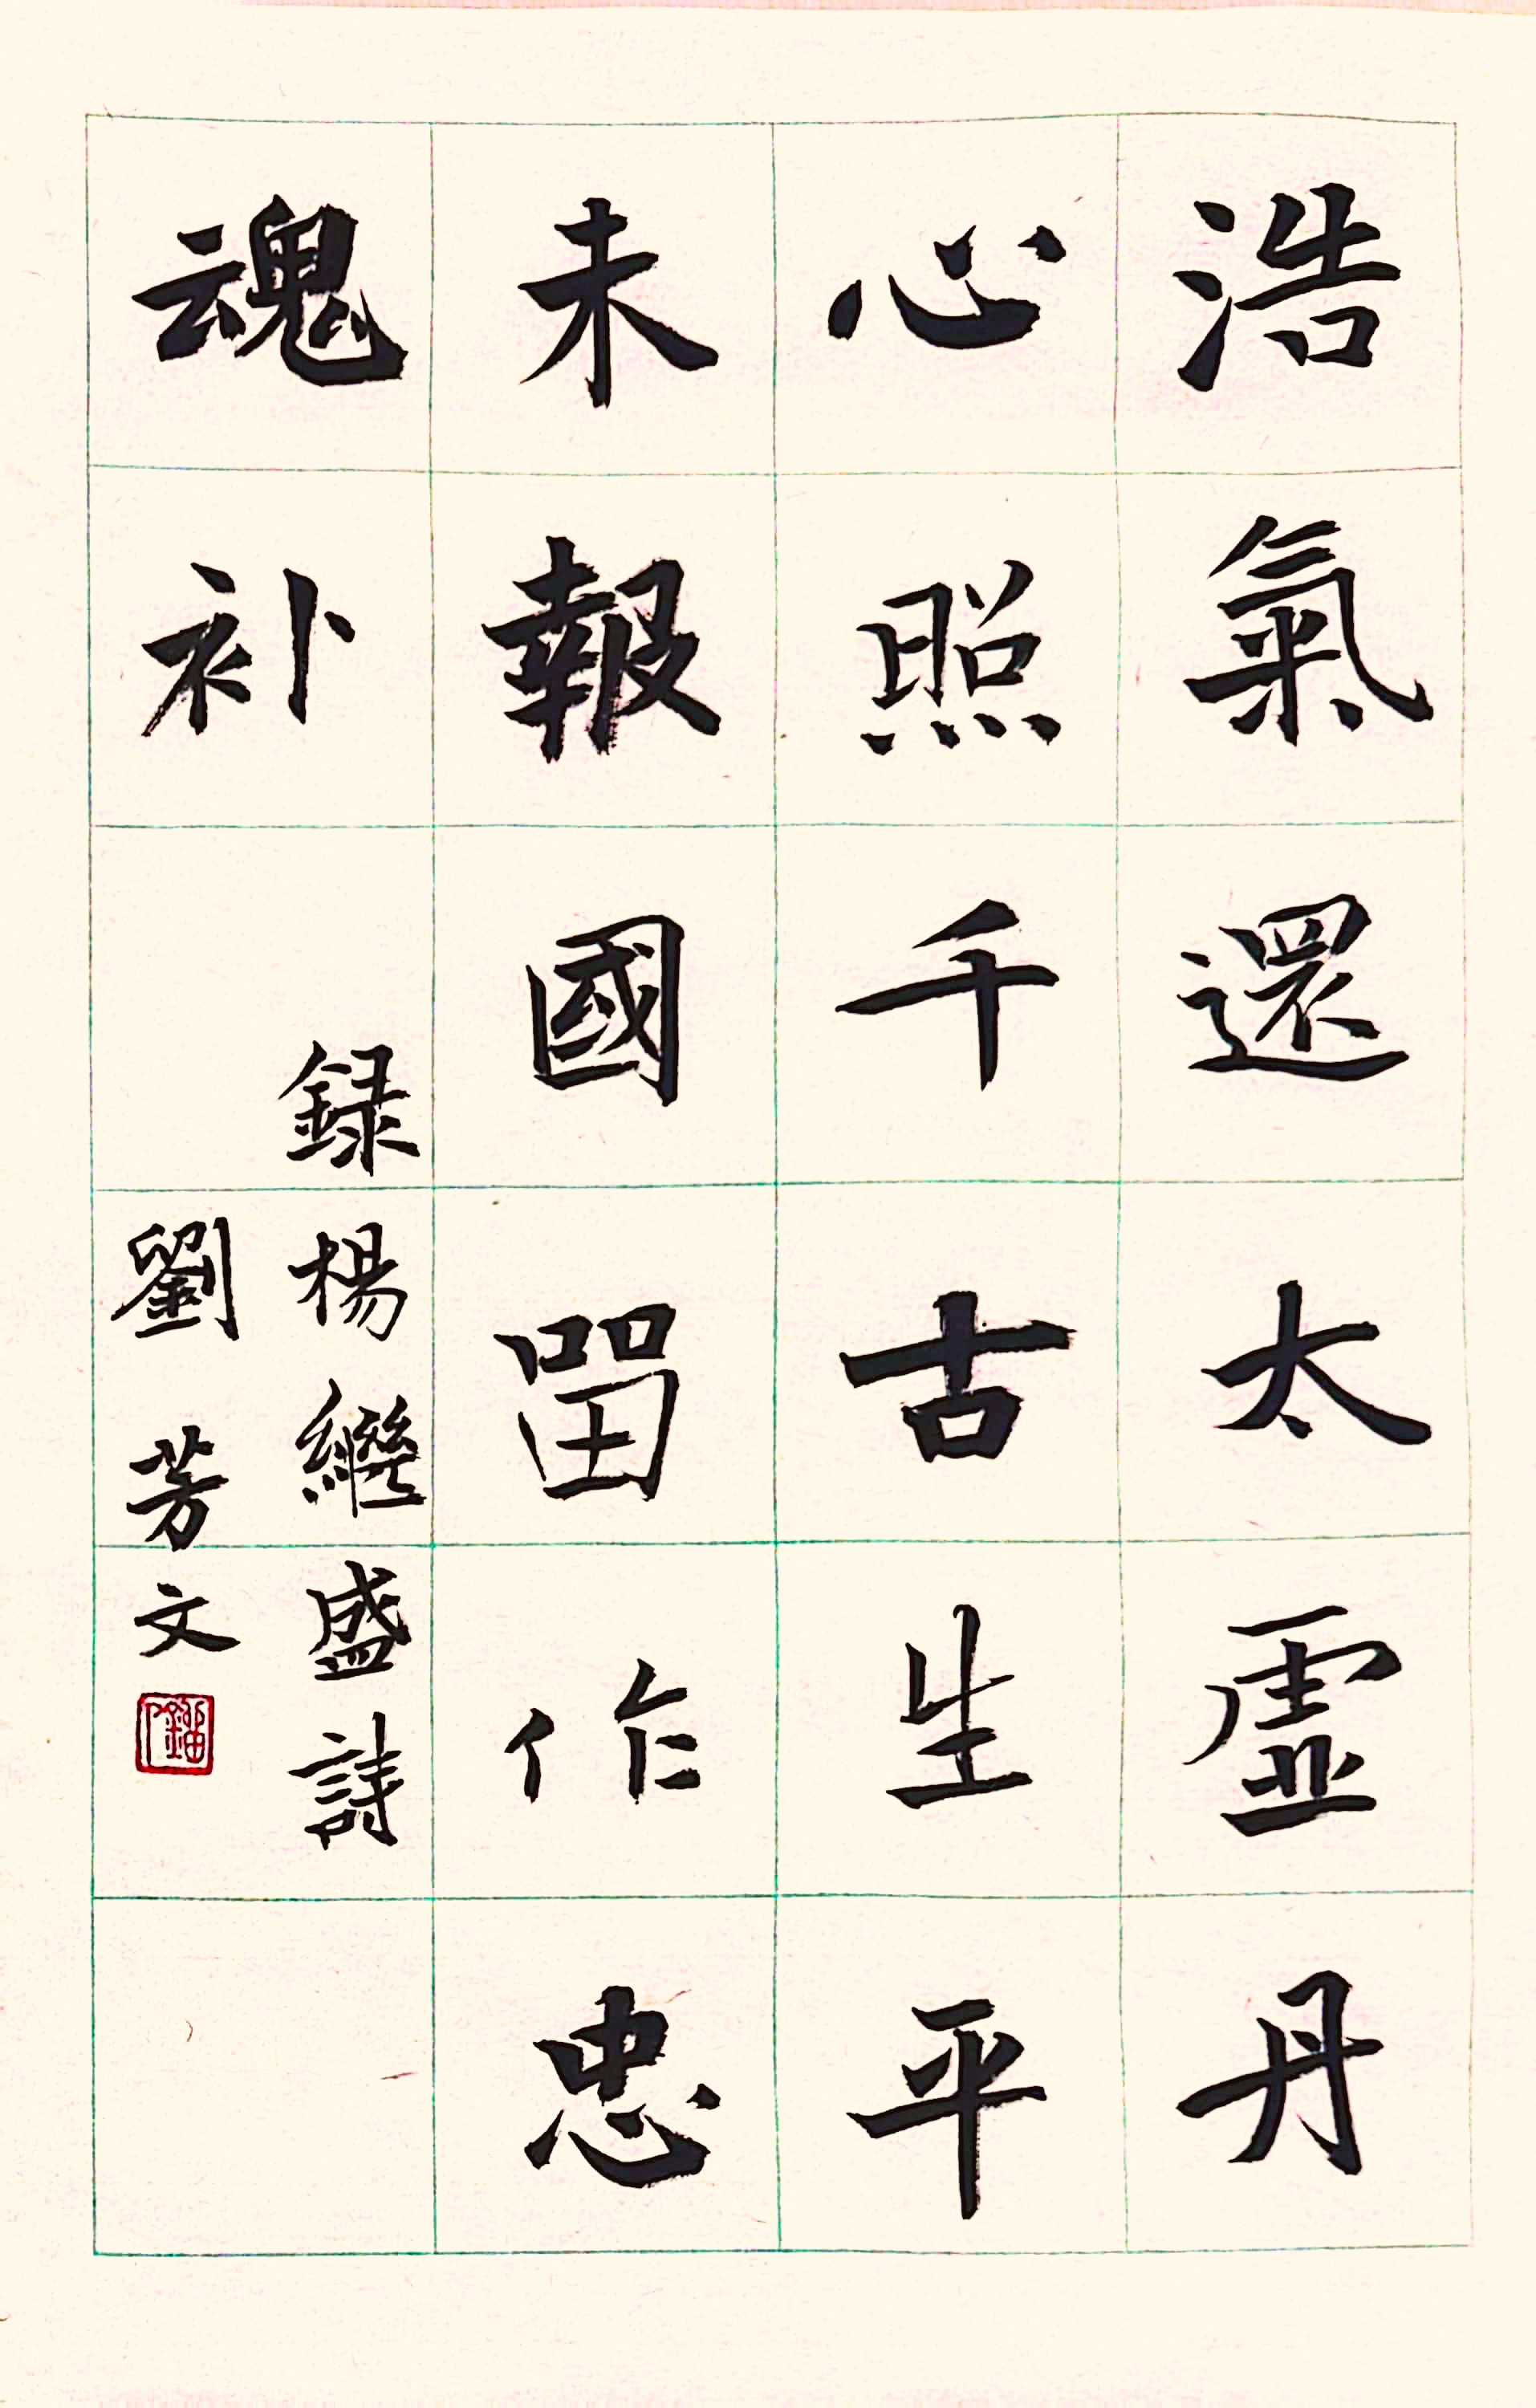 浩氣還太虛丹
心照千古生平
未報國留作忠
魂补
録楊繼盛詩
劉芳文